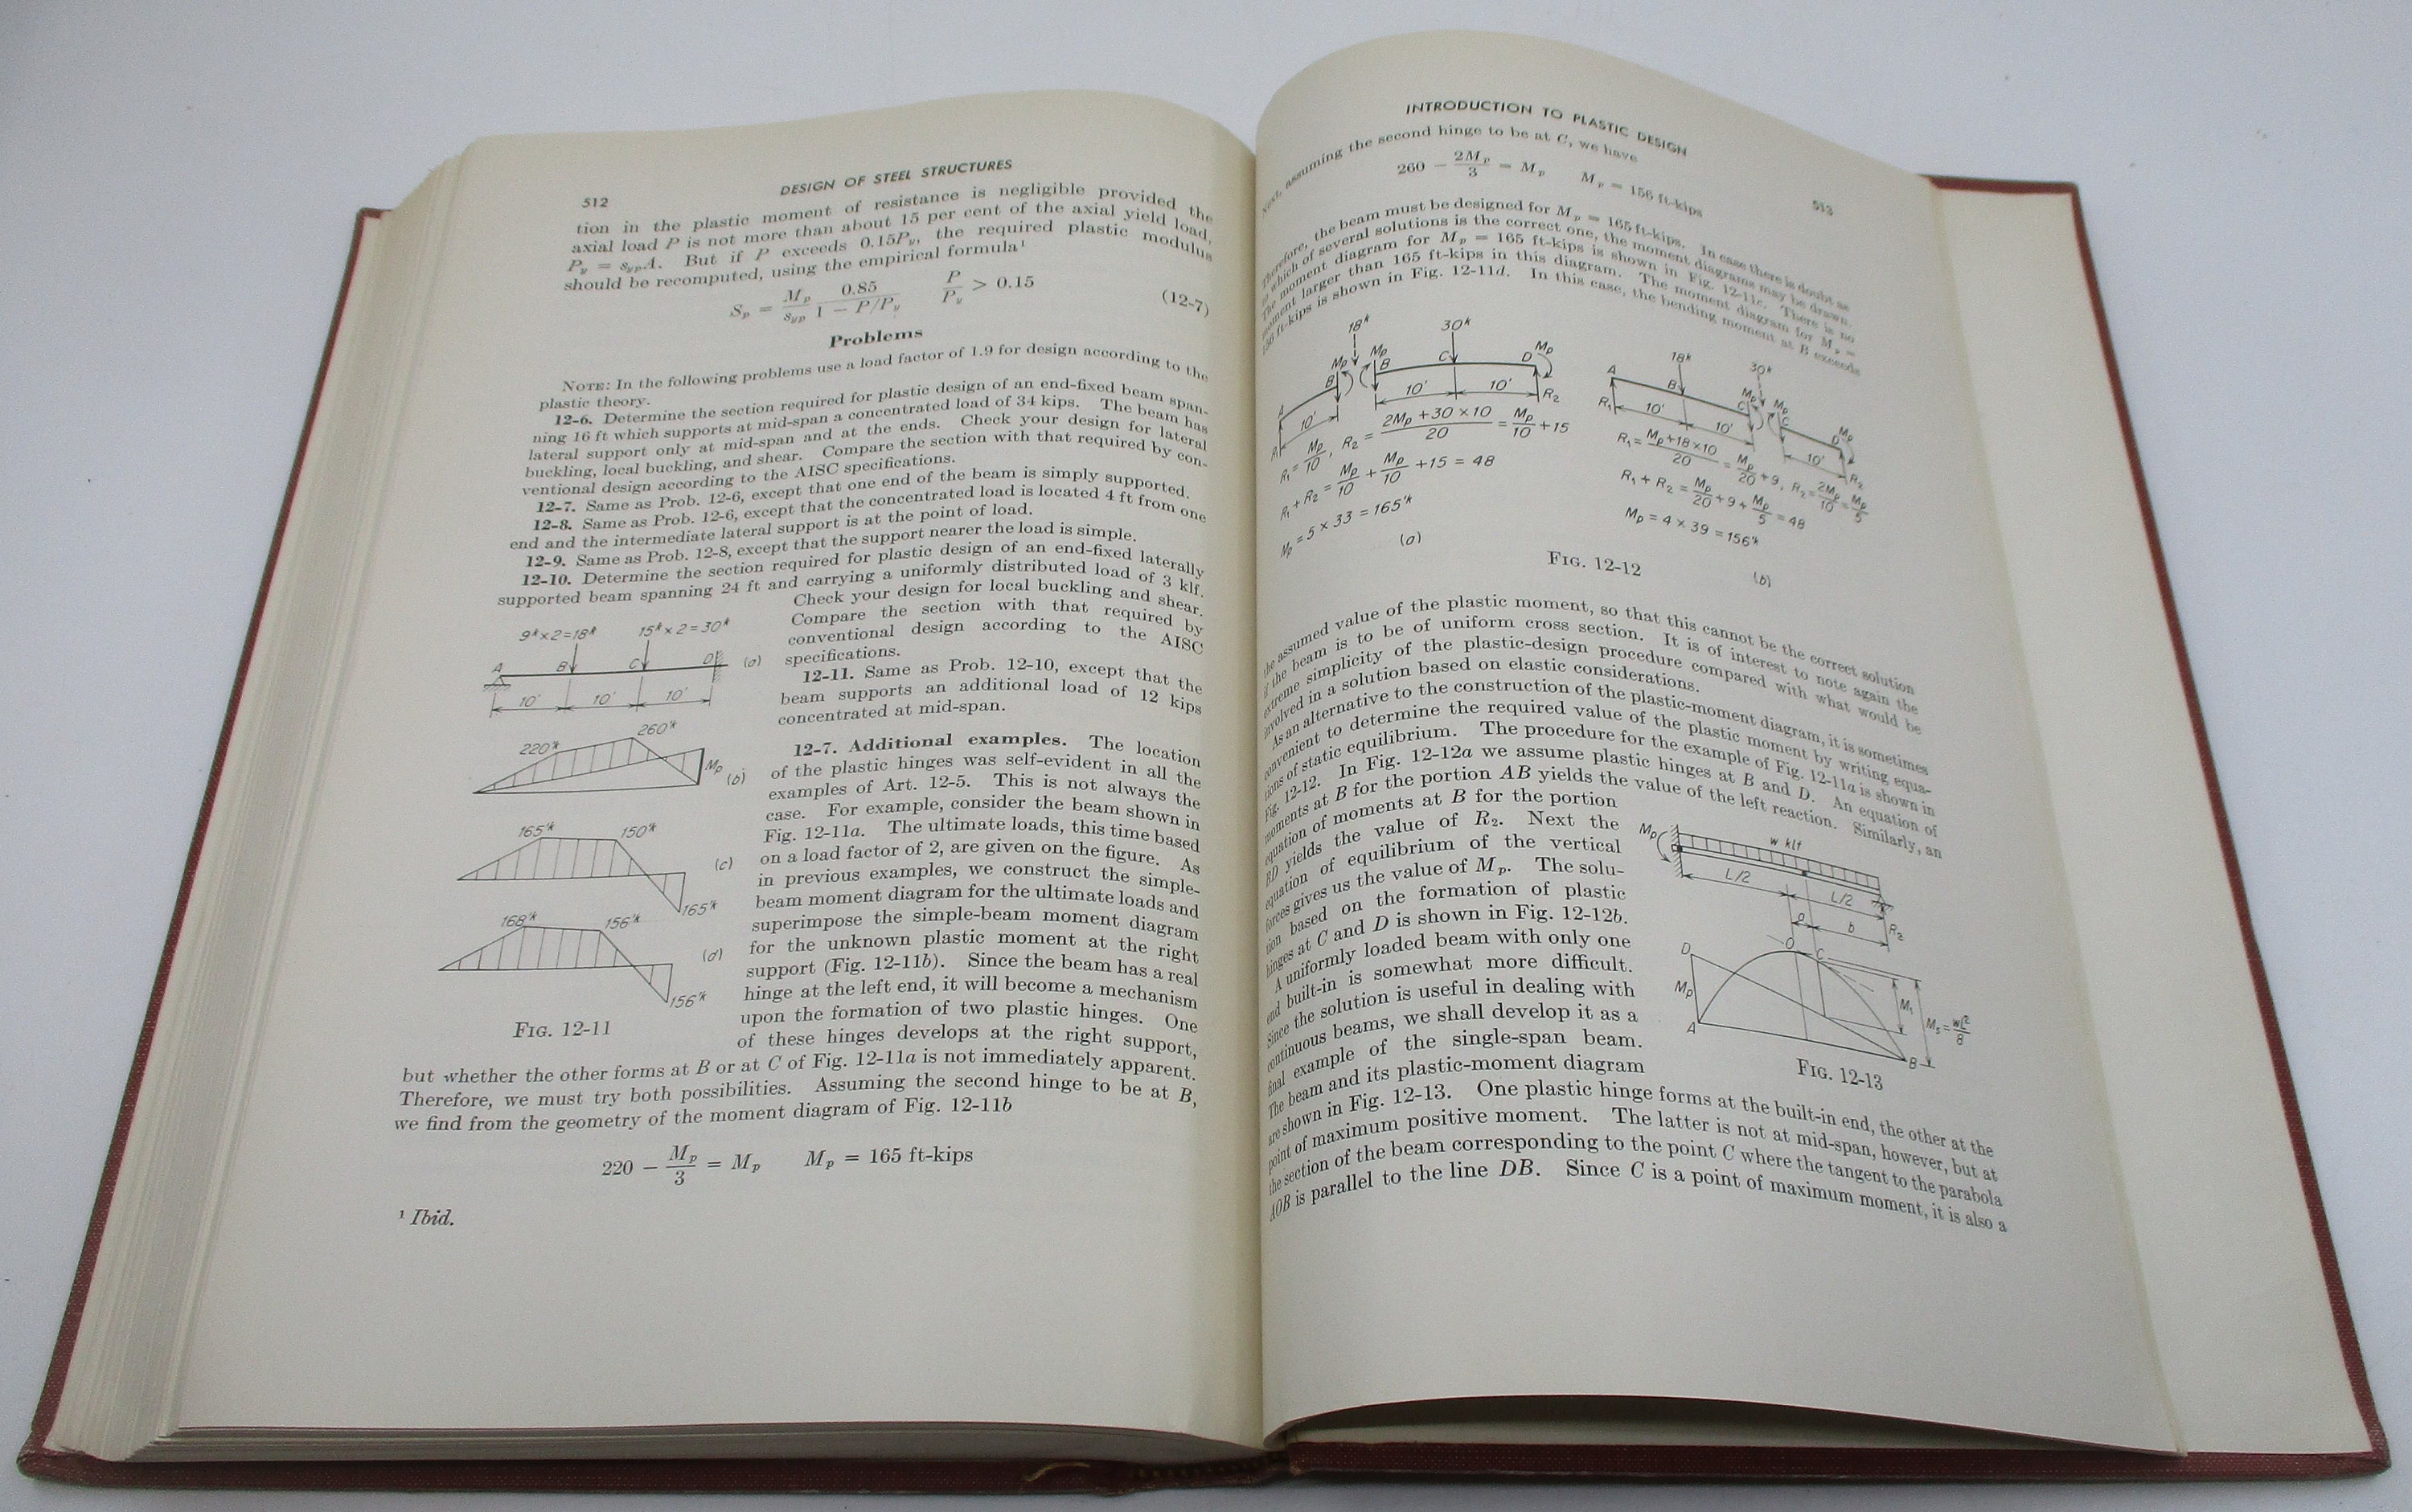 512
DESIGN OF STEEL STRUCTURES
tion in the plastic moment of resistance is negligible provided the
axial load P is not more than about 15 per cent of the axial yield load,
P_y = s_yp A. But if P exceeds 0.15P_y, the required plastic modulus
should be recomputed, using the empirical formula¹
S_p = M_p/s_yp 0.85/(1 − P/P_y) P/P_y > 0.15 (12-7)
Problems
NOTE: In the following problems use a load factor of 1.9 for design according to the
plastic theory.
12-6. Determine the section required for plastic design of an end-fixed beam span-
ning 16 ft which supports at mid-span a concentrated load of 34 kips. The beam has
lateral support only at mid-span and at the ends. Check your design for lateral
buckling, local buckling, and shear. Compare the section with that required by con-
ventional design according to the AISC specifications.
12-7. Same as Prob. 12-6, except that one end of the beam is simply supported.
12-8. Same as Prob. 12-6, except that the concentrated load is located 4 ft from one
end and the intermediate lateral support is at the point of load.
12-9. Same as Prob. 12-8, except that the support nearer the load is simple.
12-10. Determine the section required for plastic design of an end-fixed laterally
supported beam spanning 24 ft and carrying a uniformly distributed load of 3 klf.
Check your design for local buckling and shear.
Compare the section with that required by
conventional design according to the AISC
specifications.
12-11. Same as Prob. 12-10, except that the
beam supports an additional load of 12 kips
concentrated at mid-span.
9ᵏ×2=18ᵏ 15ᵏ×2=30ᵏ
A B C D (a)
10' 10' 10'
220'ᵏ 260'ᵏ M_p (b)
165'ᵏ 150'ᵏ (c)
165'ᵏ
168'ᵏ 156'ᵏ (d)
156'ᵏ
FIG. 12-11
12-7. Additional examples. The location
of the plastic hinges was self-evident in all the
examples of Art. 12-5. This is not always the
case. For example, consider the beam shown in
Fig. 12-11a. The ultimate loads, this time based
on a load factor of 2, are given on the figure. As
in previous examples, we construct the simple-
beam moment diagram for the ultimate loads and
superimpose the simple-beam moment diagram
for the unknown plastic moment at the right
support (Fig. 12-11b). Since the beam has a real
hinge at the left end, it will become a mechanism
upon the formation of two plastic hinges. One
of these hinges develops at the right support,
but whether the other forms at B or at C of Fig. 12-11a is not immediately apparent.
Therefore, we must try both possibilities. Assuming the second hinge to be at B,
we find from the geometry of the moment diagram of Fig. 12-11b
220 − M_p/3 = M_p M_p = 165 ft-kips
¹ Ibid.
INTRODUCTION TO PLASTIC DESIGN
513
Next, assuming the second hinge to be at C, we have
260 − 2M_p/3 = M_p M_p = 156 ft-kips
Therefore, the beam must be designed for M_p = 165 ft-kips. In case there is doubt as
to which of several solutions is the correct one, the moment diagrams may be drawn.
The moment diagram for M_p = 165 ft-kips is shown in Fig. 12-11c. There is no
moment larger than 165 ft-kips in this diagram. The moment diagram for M_p =
156 ft-kips is shown in Fig. 12-11d. In this case, the bending moment at B exceeds
18ᵏ 30ᵏ
A B M_p M_p B C D M_p
10' 10' 10' R₂
R₁ = M_p/10, R₂ = (2M_p + 30 × 10)/20 = M_p/10 + 15
R₁ + R₂ = M_p/10 + M_p/10 + 15 = 48
M_p = 5 × 33 = 165'ᵏ
(a)
18ᵏ 30ᵏ
A B C M_p M_p C D M_p
R₁ 10' 10' 10' R₂
R₁ = (M_p + 18 × 10)/20 = M_p/20 + 9, R₂ = 2M_p/10 = M_p/5
R₁ + R₂ = M_p/20 + 9 + M_p/5 = 48
M_p = 4 × 39 = 156'ᵏ
(b)
FIG. 12-12
the assumed value of the plastic moment, so that this cannot be the correct solution
if the beam is to be of uniform cross section. It is of interest to note again the
extreme simplicity of the plastic-design procedure compared with what would be
involved in a solution based on elastic considerations.
As an alternative to the construction of the plastic-moment diagram, it is sometimes
convenient to determine the required value of the plastic moment by writing equa-
tions of static equilibrium. The procedure for the example of Fig. 12-11a is shown in
Fig. 12-12. In Fig. 12-12a we assume plastic hinges at B and D. An equation of
moments at B for the portion AB yields the value of the left reaction. Similarly, an
equation of moments at B for the portion
BD yields the value of R₂. Next the
equation of equilibrium of the vertical
forces gives us the value of M_p. The solu-
tion based on the formation of plastic
hinges at C and D is shown in Fig. 12-12b.
A uniformly loaded beam with only one
end built-in is somewhat more difficult.
Since the solution is useful in dealing with
continuous beams, we shall develop it as a
final example of the single-span beam.
The beam and its plastic-moment diagram
are shown in Fig. 12-13. One plastic hinge forms at the built-in end, the other at the
point of maximum positive moment. The latter is not at mid-span, however, but at
the section of the beam corresponding to the point C where the tangent to the parabola
AOB is parallel to the line DB. Since C is a point of maximum moment, it is also a
M_p w klf
L/2 L/2
a b R₂
D O C
M_p M₁ M_s = wL²/8
A B
FIG. 12-13